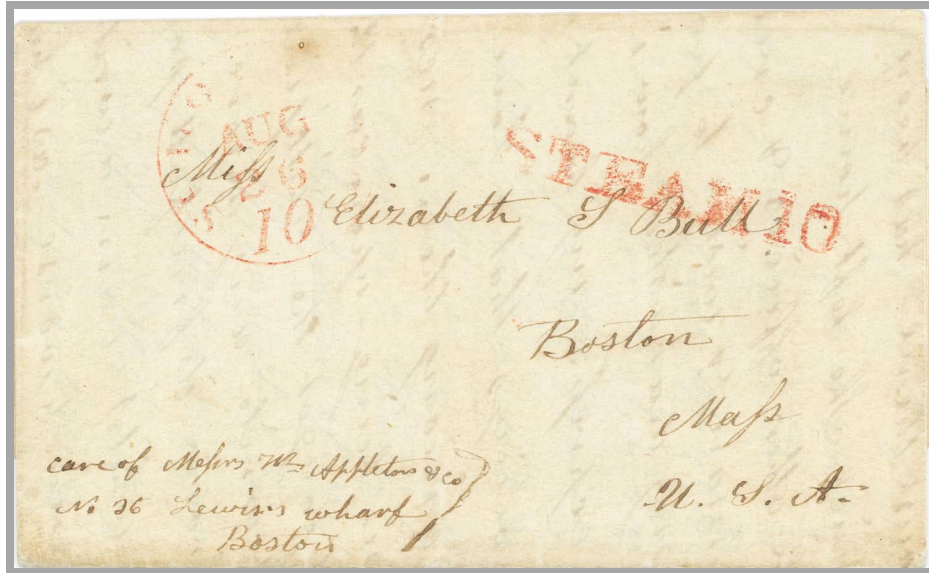 AUG
26
10
STEAM 10
Miss
Elizabeth S Bull
Boston
Mass
U. S. A.
care of Messrs Wm Appleton & Co
No 36 Lewis's wharf
Boston